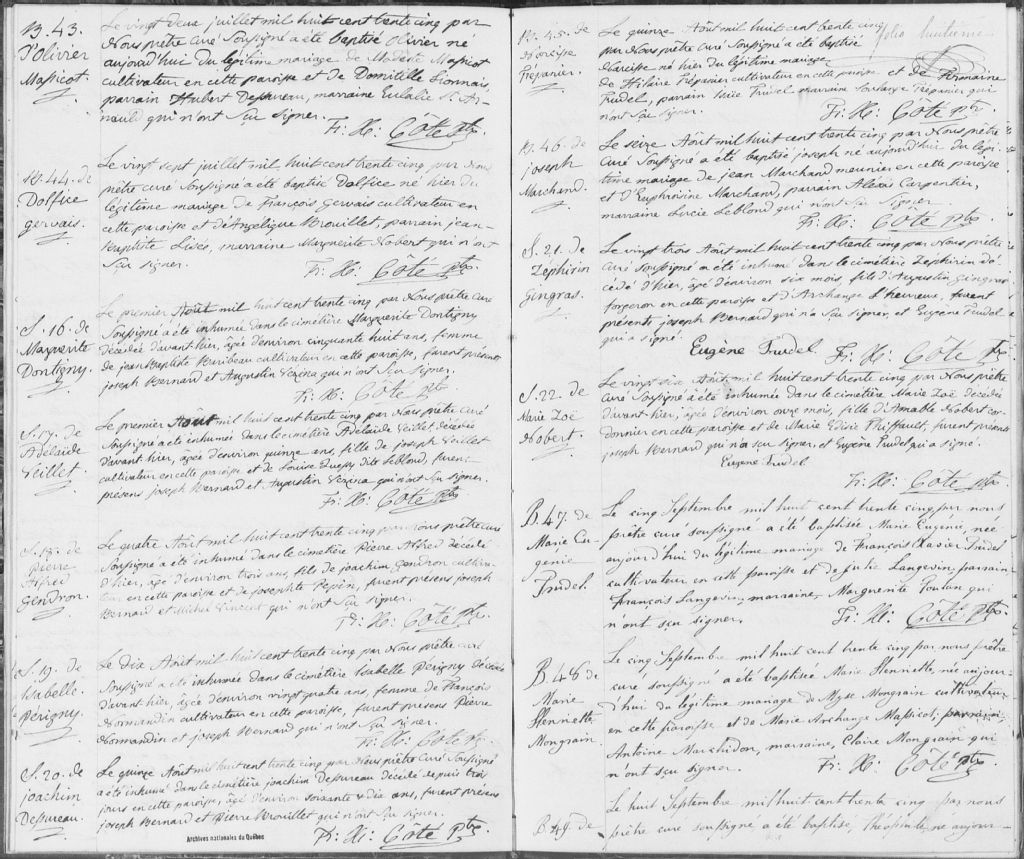 B. 43.
D'olivier
Massicot.
Le vingt deux juillet mil huit cent trente cinq par
Nous prêtre curé soussigné a été baptisé Olivier né
aujourd'hui du légitime mariage de Modeste Massicot
cultivateur en cette paroisse et de Domitille Lionnais,
parrain Hubert Despureau, marraine Eulalie St. Ar-
nauld qui n'ont sçu signer.
Fr: X: Côté Ptre.
B. 44. de
Dolfice
gervais.
Le vingt sept juillet mil huit cent trente cinq par Nous
prêtre curé soussigné a été baptisé Dolfice né hier du
légitime mariage de François Gervais cultivateur en
cette paroisse et d'Angélique Brouillet, parrain jean-
Baptiste Lisée, marraine Marguerite Nobert qui n'ont
sçu signer.
Fr: X: Côté Ptre.
S. 16. de
Marguerite
Dontigny.
Le premier Août mil huit cent trente cinq par Nous prêtre curé
soussigné a été inhumée dans le cimétière Marguerite Dontigny
décédée d'avant hier, âgée d'environ cinquante huit ans, femme
de jean Baptiste Baribeau cultivateur en cette paroisse, furent présents
joseph Bernard et Augustin Vezina qui n'ont sçu signer.
Fr: X: Côté Ptre
S. 17. de
Adelaide
Veillet.
Le premier Août mil huit cent trente cinq par Nous prêtre curé
soussigné a été inhumée dans le cimétière Adelaide Veillet décédée
d'avant hier, âgée d'environ quinze ans, fille de joseph Veillet
cultivateur en cette paroisse et de Louise Quessy dite Leblond, furent
présens joseph Bernard et Augustin Vezina qui n'ont sçu signer.
Fr: X: Côté Ptre
S. 18. de
Pierre
Alfred
Gendron.
Le quatre Août mil huit cent trente cinq par nous prêtre curé
soussigné a été inhumé dans le cimétière Pierre Alfred décédé
d'hier, âgé d'environ trois ans, fils de joachim Gendron cultiva-
teur en cette paroisse et de josephte Pepin, furent présens joseph
Bernard et Michel Vincent qui n'ont sçu signer.
Fr: X: Côté Ptre.
S. 19. de
Isabelle
Périgny.
Le dix Août mil huit cent trente cinq par Nous prêtre curé
soussigné a été inhumée dans le cimétière Isabelle Périgny décédée
d'avant hier, âgée d'environ vingt quatre ans, femme de François
Normandin cultivateur en cette paroisse, furent présens Pierre
Normandin et joseph Bernard qui n'ont sçu signer.
Fr: X: Côté Ptre.
S. 20. de
joachim
Despureau.
Le quinze Août mil huit cent trente cinq par Nous prêtre curé soussigné
a été inhumé dans le cimétière joachim Despureau décédé depuis trois
jours en cette paroisse, âgé d'environ soixante & dix ans, furent présens
joseph Bernard et Pierre Brouillet qui n'ont sçu signer.
Fr: X: Côté Ptre.
Archives nationales du Québec
folio huitième
B. 45. de
Narcisse
Trépanier.
Le quinze Août mil huit cent trente cinq
par Nous prêtre curé soussigné a été baptisé
Narcisse né hier du légitime mariage
de Hilaire Trépanier cultivateur en cette paroisse et de Germaine
Trudel, parrain Isaie Trudel marraine Solange Trépanier qui
n'ont sçu signer.
Fr: X: Côté Ptre.
B. 46. de
joseph
Marchand.
Le seize Août mil huit cent trente cinq par Nous prêtre
curé soussigné a été baptisé joseph né aujourd'hui du légi-
time mariage de jean Marchand meunier en cette paroisse
et d'Euphrosine Marchand, parrain Alexis Carpentier,
marraine Lucie Leblond qui n'ont sçu signer.
Fr: X: Côté Ptre.
S. 21. de
Zephirin
Gingras.
Le vingt trois Août mil huit cent trente cinq par Nous prêtre
curé soussigné a été inhumé dans le cimétière Zephirin dé-
cédé d'hier, âgé d'environ six mois, fils d'Augustin Gingras
forgeron en cette paroisse et d'Archange L'heureux, furent
présents joseph Bernard qui n'a sçu signer, et Eugène Trudel
qui a signé.
Eugène Trudel. Fr: X: Côté Ptre
S. 22. de
Marie Zoé
Nobert.
Le vingt six Août mil huit cent trente cinq par Nous prêtre
curé soussigné a été inhumée dans le cimétière Marie Zoé décédée
d'avant-hier, âgée d'environ onze mois, fille d'Amable Nobert cor-
donnier en cette paroisse et de Marie Edise Thiffault, furent présents
joseph Bernard qui n'a sçu signer, et Eugène Trudel qui a signé.
Eugène Trudel
Fr: X: Côté Ptre.
B. 47. de
Marie Eu-
genie
Trudel.
Le cinq Septembre mil huit cent trente cinq par nous
prêtre curé soussigné a été baptisée Marie Eugenie, née
aujourd'hui du légitime mariage de François Xavier Trudel
cultivateur en cette paroisse et de Julie Langevin, parrain
François Langevin, marraine, Marguerite Toutan qui
n'ont sçu signer.
Fr: X: Côté Ptre.
B. 48 de
Marie
Henriette
Mongrain.
Le cinq Septembre mil huit cent trente cinq par nous prêtre
curé soussigné a été baptisée Marie Henriette, née aujour-
d'hui du légitime mariage de Moyse Mongrain cultivateur
en cette paroisse et de Marie Archange Massicot, parrain
Antoine Marchildon, marraine, Claire Mongrain qui
n'ont sçu signer.
Fr: X: Côté Ptre
B. 49. de
Le huit Septembre mil huit cent trente cinq par nous
prêtre curé soussigné a été baptisé, Théophile né aujour-